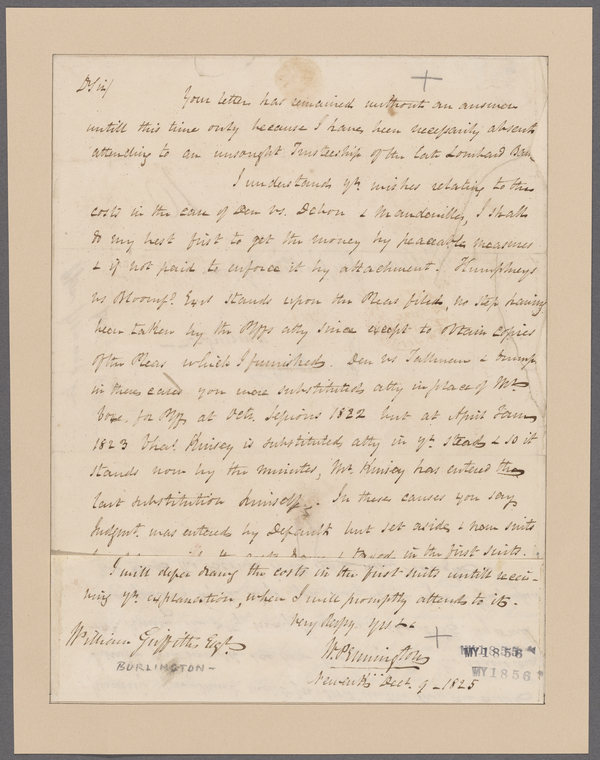 D Sir/
Your letter has remained without an answer
untill this time only because I have been necessarily absent
attending to an unsought Trusteeship of the late Lombard Ban
I understand yr. wishes relating to the
costs in the case of Den vs. Debow & Mandeville, I shall
do my best first to get the money by peaceable measures
& if not paid to enforce it by attachment. Humphreys
vs Bloomfd. Exrs stands upon the Pleas filed, no step having
been taken by the Plffs atty since except to obtain copies
of the Pleas which I furnished. Den vs Tallman &
in these cases you were substituted atty in place of Mr
Coxe. for Plff at Octr. Sessions 1822 but at April Term
1823 Chas. Kinsey is substituted atty in yr. stead & so it
stands now by the minutes, Mr Kinsey has entered the
last substitution himself. In these causes you say
Judgmt. was entered by Default but set aside & new suits
& in the first suits.
I will defer drawg the costs in the first suits untill receiv-
ing yr. explanation, when I will promptly attend to it.
Very Respy. Yrs &c
William Griffith Esqr.
BURLINGTON -
W. Pennington
Newark Decr. 9 - 1825
MY1856
MY1856